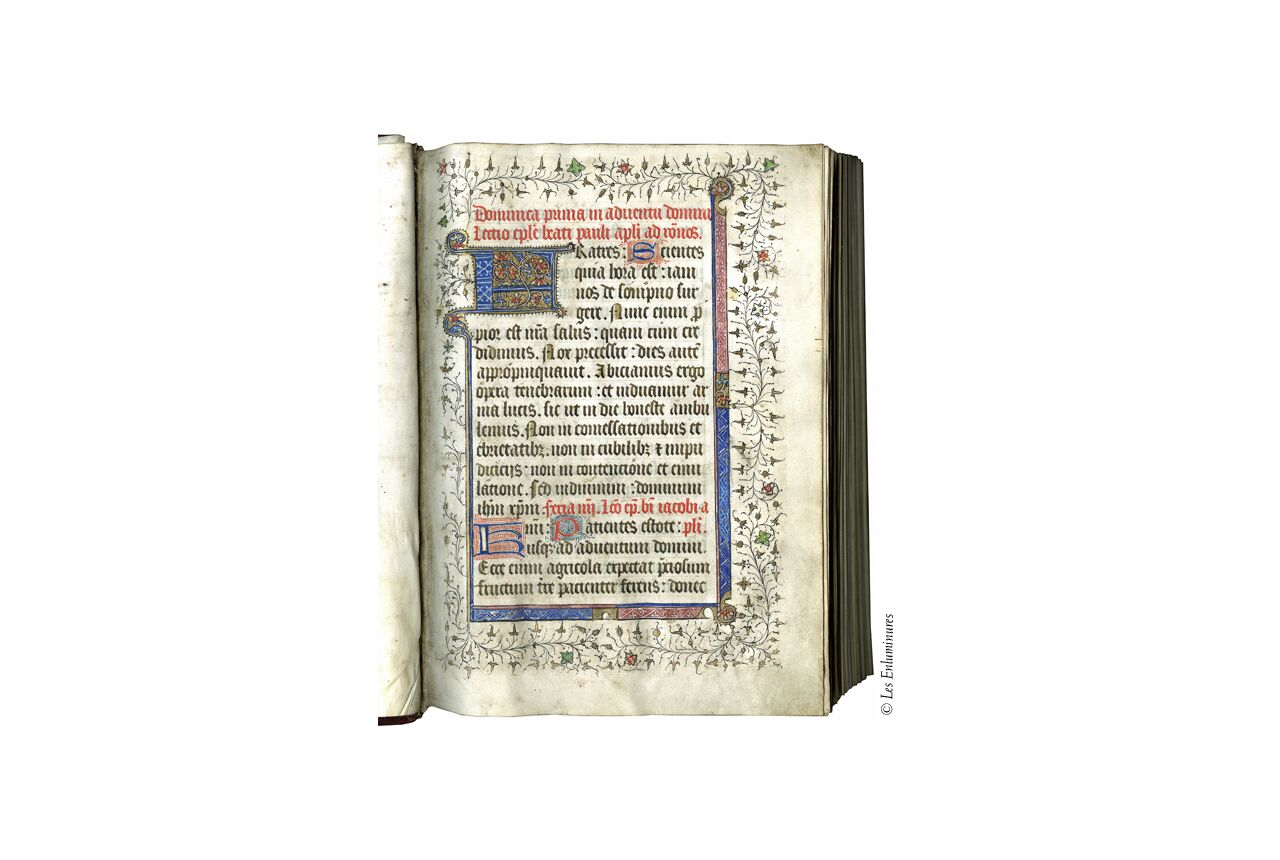 Dominica prima in aduentu domini
Lectio ep̄le beati pauli apl̄i ad rōnos.
FRatres: Scientes
quia hora est: iam
nos de sompno sur
gere. Nunc enim ꝓ
pior est nr̄a salus: quam cum cre
didimus. Nox precessit: dies autē
appropinquauit. Abiciamus ergo
opera tenebrarum: et induamur ar
ma lucis. sic ut in die honeste ambu
lemus. Non in comessationibus et
ebrietatibꝫ. non in cubilibꝫ ⁊ impu
dicicijs: non in contencione et emu
latione. Sed induimini: dominum
ihm̄ xp̄m. feria iiij. Lc̄o ep̄. bī iacobi a
Kmi: Patientes estote: pl̄i
usqꝫ ad aduentum domini
Ecce enim agricola expectat p̄ciosum
fructum t̄re pacienter ferens: donec
© Les Enluminures